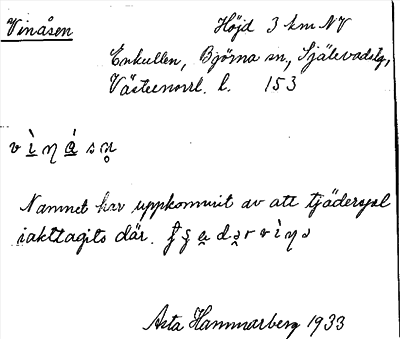 Vinåsen Höjd 3 km NV
Enkullen, Björna sn, Själevads tg,
Västernorrl. l. 153
Namnet har uppkommit av att tjäderspel
iakttagits där.
Asta Hammarberg 1933